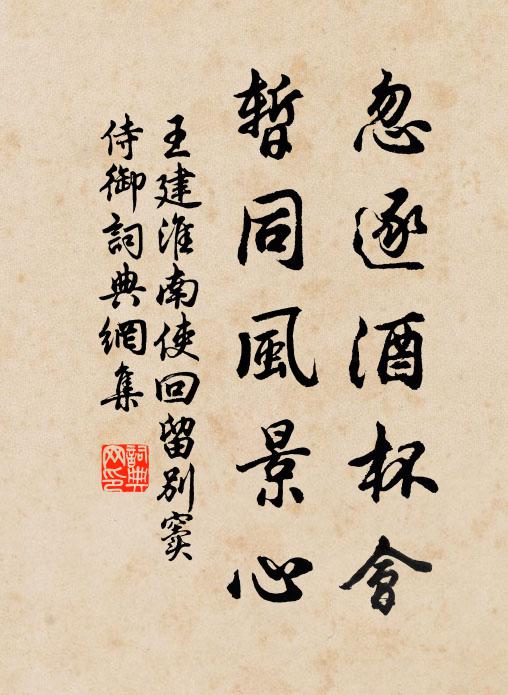 忽逐酒杯會
暫同風景心
王建淮南使回留別竇
侍御詞典網集
詞典网印